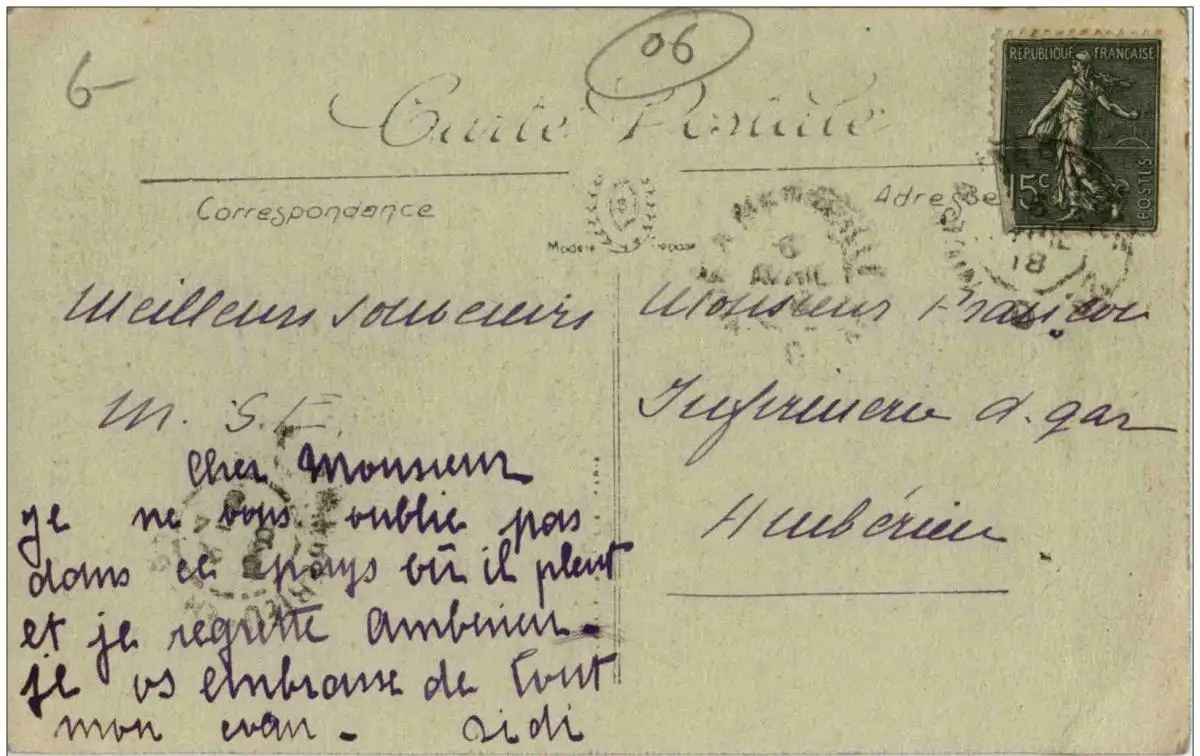 6
06
Carte Postale
REPUBLIQUE FRANÇAISE
15c
POSTES
Correspondance
Adresse
18
6
AVRIL
Meilleurs souvenirs
M. S. E.
Cher Monsieur
je ne vous oublie pas
dans ce pays où il pleut
et je regrette Ambérieu.
je vs embrasse de tout
mon cœur - Sidi
Monsieur
Infirmerie d. gar
Ambérieu